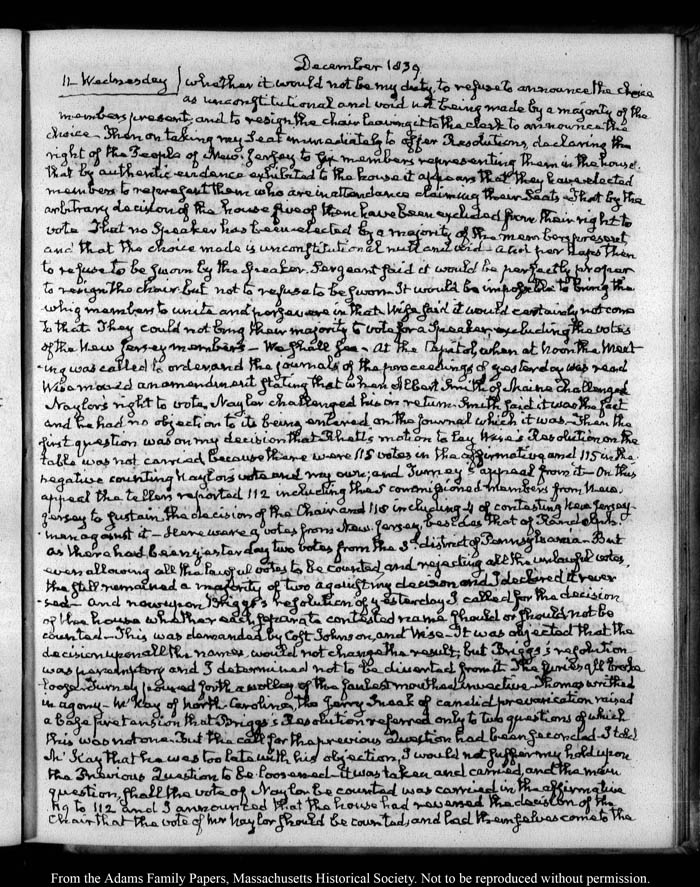 December 1839
12 Wednesday whether it would not be my duty to refuse to announce the choice
as unconstitutional and void not being made by a majority of the
members present, and to resign the chair leaving it to the clerk to announce the
choice – Then on taking my Seat immediately to offer Resolutions, declaring the
right of the People of New-Jersey to six members representing them in the house.
that by authentic evidence exhibited to the house it appears that they have elected
members to represent them who are in attendance claiming their Seats – That by the
arbitrary decision of the house five of them have been excluded from their right to
vote. That no Speaker has been elected by a majority of the members present,
and that the choice made is unconstitutional null and void – and perhaps then
to refuse to be sworn by the Speaker. Sergeant said it would be perfectly proper
to resign the chair but not to refuse to be sworn. It would be impossible to bring the
whig members to unite and persevere in that. Wise said it would certainly not come
to that. They could not bring their majority to vote for a Speaker excluding the votes
of the New Jersey members – We shall see – At the Capitol, when at Noon the Meet-
-ing was called to order and the journals of the proceedings of yesterday was read
Wise moved an amendment stating that when Albert Smith of Maine challenged
Naylor's right to vote, Naylor challenged his on return. Smith said it was the fact
and he had no objection to its being entered on the journal which it was – Then the
first question was on my decision that Rhett's motion to lay Wise's Resolution on the
table was not carried because there were 115 votes in the affirmative and 115 in the
negative counting Naylor's vote and my own; and Turney's appeal from it – On this
appeal the tellers reported 112 including the 5 commissioned members from New-
Jersey to sustain the decision of the Chair and 118 including 4 of contesting New Jersey-
-men against it – Here were 9 votes from New-Jersey, besides that of Randolph.
as there had been yesterday two votes from the 3d. district of Pennsylvania – But
even allowing all the lawful votes to be counted and rejecting all the unlawful votes,
the still remained a majority of two against my decision and I declared it rever
-sed – And now upon Briggs's resolution of yesterday I called for the decision
of the house whether each separate contested name should or should not be
counted – This was demanded by Cost Johnson, and Wise – It was objected that the
decision upon all the names would not change the result; but Briggs's resolution
was peremptory and I determined not to be diverted from it. The furies all broke
loose. Turney poured forth a volley of the foulest mouthed invective. Thomas writhed
in agony – McKay of North-Carolina, the Jerry Sneak of candid prevarication raised
a base pretension that Briggs's Resolution referred only to two questions of which
this was not one. But the call for the previous Question had been seconded – I told
Mr Kay that he was too late with his objection, I would not suffer my hold upon
the Previous Question to be loosened – it was taken and carried, and the main
question, shall the vote of Naylor be counted was carried in the affirmative
119 to 112 and I announced that the house had reversed the decision of the
Chair that the vote of Mr Naylor should be counted, and had themselves come to the
From the Adams Family Papers, Massachusetts Historical Society. Not to be reproduced without permission.